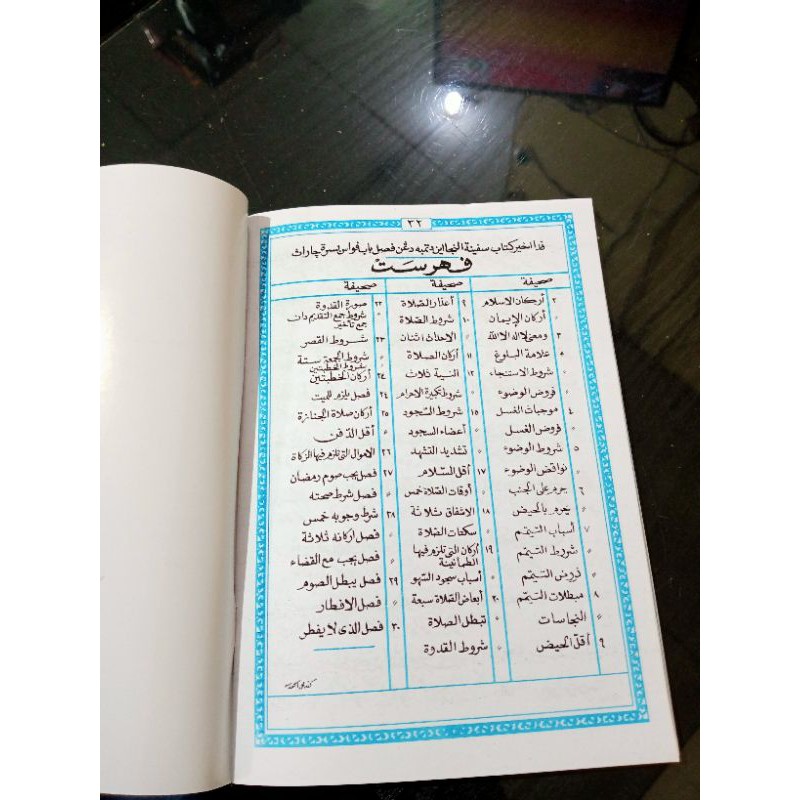 ٣٢
فدا اخير كتاب سفينة النجا اين دتمبه دغن فصل باب فواس سرة چاراث
فهرست
صحيفة
٢ أركان الاسلام
" أركان الإيمان
٣ ومعنى لااله الا الله
" علامة البلوغ
" شروط الاستنجاء
" فروض الوضوء
٤ موجبات الغسل
" فروض الغسل
٥ شروط الوضوء
" نواقض الوضوء
٦ يحرم على الجنب
" يحرم بالحيض
٧ أسباب التيمم
" شروط التيمم
" فروض التيمم
٨ مبطلات التيمم
" النجاسات
٩ أقل الحيض
صحيفة
٩ أعذار الصلاة
١٠ شروط الصلاة
" الاحداث اثنان
١١ أركان الصلاة
١٢ النية ثلاث
" شروط تكبيرة الاحرام
١٥ شروط السجود
" أعضاء السجود
" تشديد التشهد
١٧ أقل السلام
" أوقات الصلاة خمس
١٨ الاشفاق ثلاثة
" سكتات الصلاة
١٩ أركان التى تلزم فيها الطمانينة
" أسباب سجود السهو
٢٠ أبعاض الصلاة سبعة
" تبطل الصلاة
" شروط القدوة
صحيفة
٢٢ صورة القدوة
" شروط جمع التقديم دان جمع تأخير
٢٣ شروط القصر
" شروط الجمعة ستة
" شروط الخطبتين
٢٤ أركان الخطبتين
٢٤ فصل يلزم للميت
٢٥ أركان صلاة الجنازة
" أقل الدفن
٢٦ الاموال التى تلزم فيها الزكاة
٢٧ فصل يجب صوم رمضان
" فصل شرط صحته
٢٨ شرط وجوبه خمس
" فصل اركانه ثلاثة
" فصل يجب مع القضاء
٢٩ فصل يبطل الصوم
" فصل الافطار
٣٠ فصل الذى لا يفطر